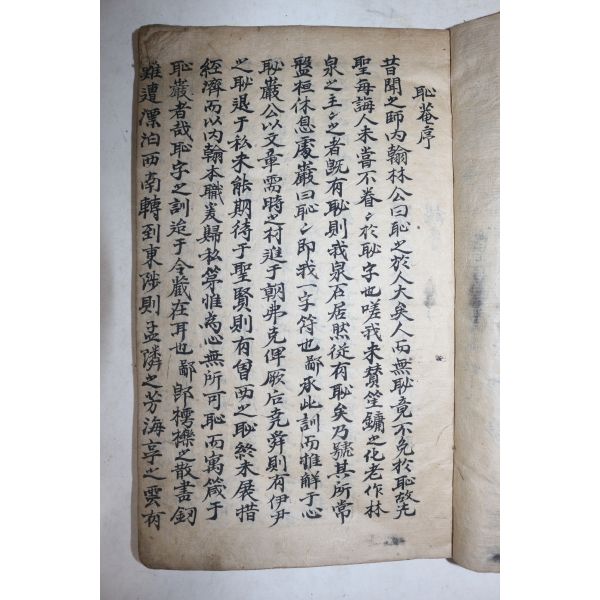 恥菴序
昔聞之師內翰林公曰恥之於人大矣人而無恥竟不免於恥故先
聖每誨人未嘗不眷〻於恥字也嗟我未賛笙鏞之化老作林
泉之主〻之者既有恥則我泉石居然從有恥矣乃號其所常
盤桓休息處巖曰恥〻卽我一字符也鄙承此訓而惟鮮于心
恥巖公以文章需時之材進于朝弗克俾厥后堯舜則有伊尹
之恥退于私未能期待于聖賢則有曾西之恥終未展措
經濟而以內翰本職羑歸私第惟爲心無所可恥而寓箴于
恥巖者哉恥字之訓迨于今歲在耳也鄙郎樗櫟之散書釰
雖遭漂泊西南轉到東陟則孟隣之芳海亭之雲有